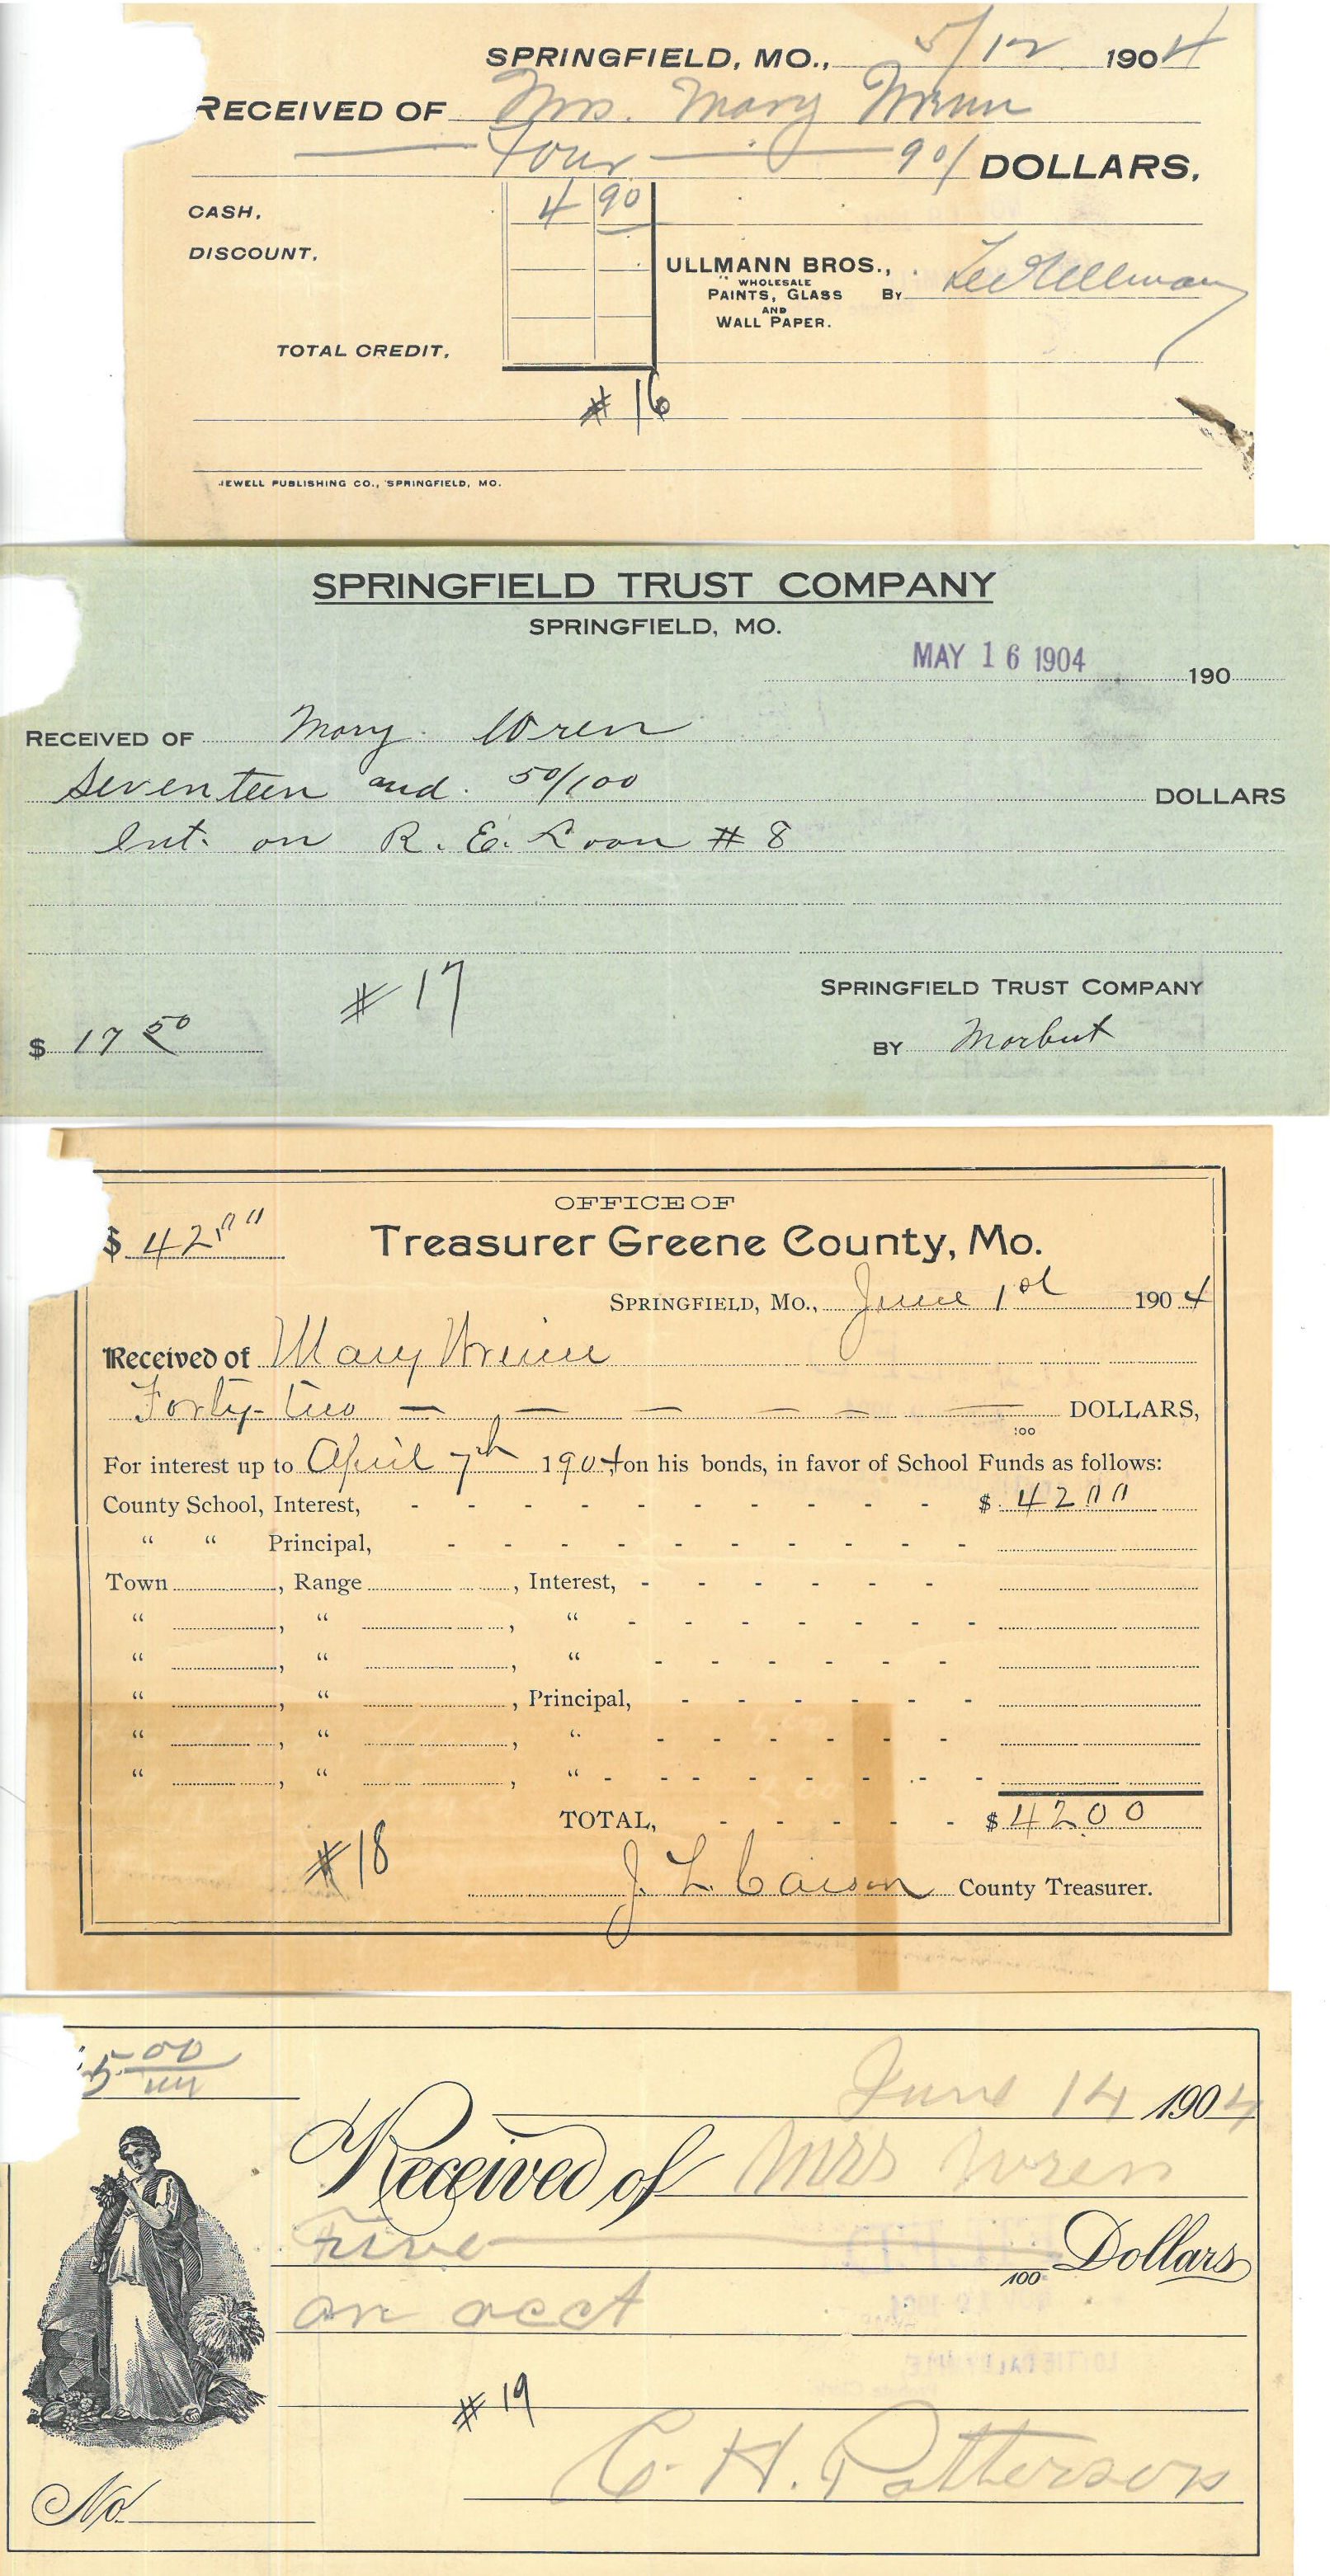 SPRINGFIELD, MO., 5/12 1904
RECEIVED OF Mrs. Mary Wrenn
Four 90/ DOLLARS.
CASH. 4 90
DISCOUNT.
ULLMANN BROS., By Lee Ullman
WHOLESALE
PAINTS, GLASS
AND
WALL PAPER.
TOTAL CREDIT.
# 16
JEWELL PUBLISHING CO., SPRINGFIELD, MO.
SPRINGFIELD TRUST COMPANY
SPRINGFIELD, MO.
MAY 16 1904 190
RECEIVED OF Mary Wren
Seventeen and 50/100 DOLLARS
Int. on R. E. Loan # 8
# 17
SPRINGFIELD TRUST COMPANY
$ 17 50
BY
OFFICE OF
$ 42 00
Treasurer Greene County, Mo.
SPRINGFIELD, MO., June 1st 1904
Received of Mary Wrenn
Forty-two — — — — — — DOLLARS,
100
For interest up to April 7th 1904 on his bonds, in favor of School Funds as follows:
County School, Interest, - - - - - - - - - - $ 42 00
" " Principal, - - - - - - - - - -
Town , Range , Interest, - - - - - -
" , " , " - - - - - - -
" , " , " - - - - - -
" , " , Principal, - - - - - -
" , " , " - - - - - -
" , " , " - - - - - - -
TOTAL, - - - - - $ 42.00
# 18
J. L. Carson County Treasurer.
5 00
June 14 1904
Received of Mrs Wren
Five Dollars
100
on acct
# 19
C. H. Patterson
No.